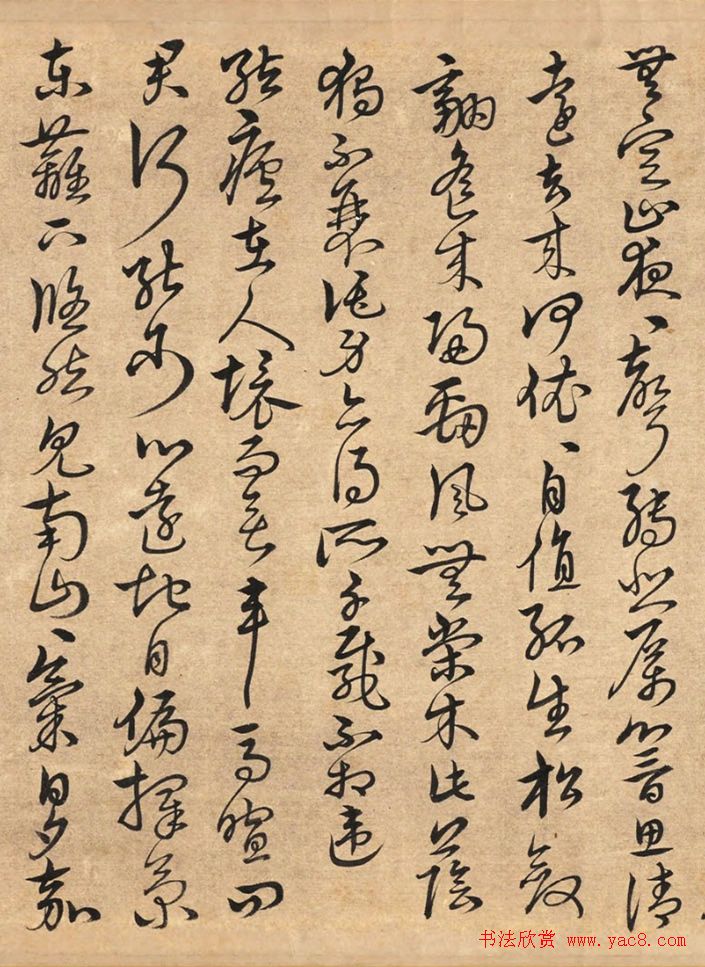 無定止夜〻聲轉悲厲響思清
遠去來何依〻自值孤生松斂
翮遙來歸勁風無榮木此蔭
獨不衰託身已得所千載不相違
結廬在人境而無車馬喧問
君何能爾心遠地自偏採菊
東籬下悠然見南山〻氣日夕嘉
书法欣赏 www.yac8.com